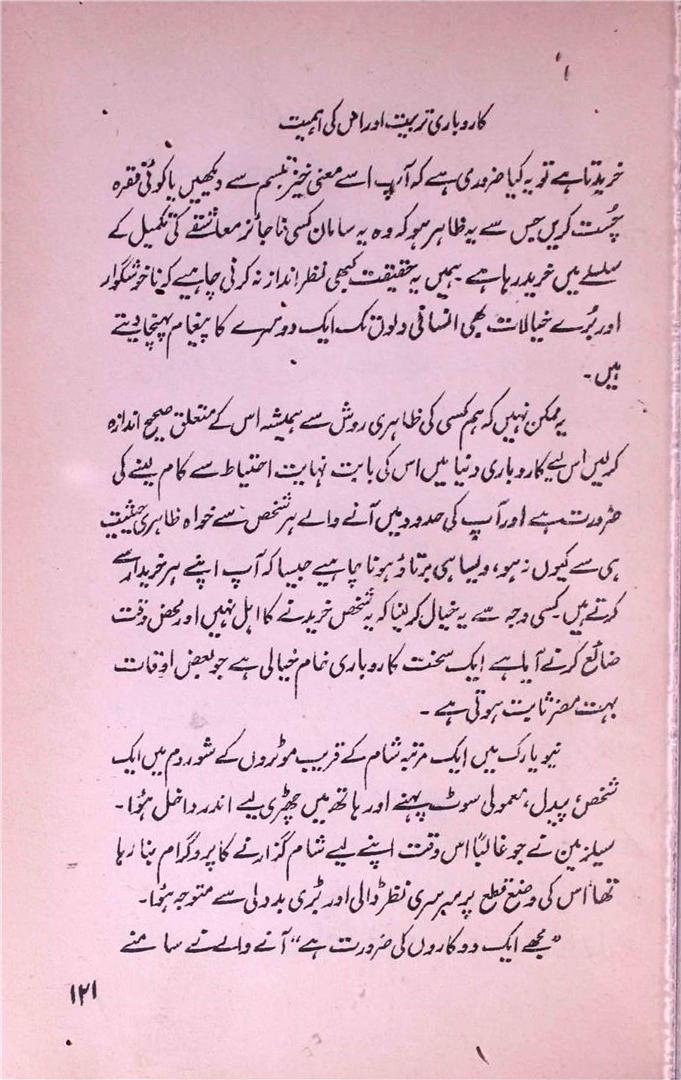 کاروباری تربیت اور اس کی اہمیت
خریدتا ہے تو یہ کیا ضروری ہے کہ آپ اسے معنی خیز تبسم سے دیکھیں یا کوئی فقرہ
چُست کریں جس سے یہ ظاہر ہو کہ وہ یہ سامان کسی ناجائز معاشقے کی تکمیل کے
سلسلے میں خرید رہا ہے۔ ہمیں یہ حقیقت کبھی نظر انداز نہ کرنی چاہیے کہ ناخوشگوار
اور بُرے خیالات بھی انسانی دلوں تک ایک دوسرے کا پیغام پہنچا دیتے
ہیں۔
یہ ممکن نہیں کہ ہم کسی کی ظاہری روش سے ہمیشہ اس کے متعلق صحیح اندازہ
کر لیں اس لیے کاروباری دنیا میں اس کی بابت نہایت احتیاط سے کام لینے کی
ضرورت ہے اور آپ کی حدود میں آنے والے ہر شخص سے خواہ ظاہری حیثیت
ہی سے کیوں نہ ہو، ویسا ہی برتاؤ ہونا چاہیے جیسا کہ آپ اپنے ہر خریدار سے
کرتے ہیں۔ کسی وجہ سے یہ خیال کر لینا کہ یہ شخص خریدنے کا اہل نہیں اور محض وقت
ضائع کرنے آیا ہے ایک سخت کاروباری خام خیالی ہے جو بعض اوقات
بہت مضر ثابت ہوتی ہے۔
نیویارک میں ایک مرتبہ شام کے قریب موٹروں کے شوروم میں ایک
شخص، پیدل، معمولی سوٹ پہنے اور ہاتھ میں چھڑی لیے اندر داخل ہُوا۔
سیلزمین نے جو غالباً اس وقت اپنے لیے شام گزارنے کا پروگرام بنا رہا
تھا اس کی وضع قطع پر سرسری نظر ڈالی اور بڑی بددلی سے متوجہ ہُوا۔
”مجھے ایک دو کاروں کی ضرورت ہے“ آنے والے نے سامنے
۱۲۱